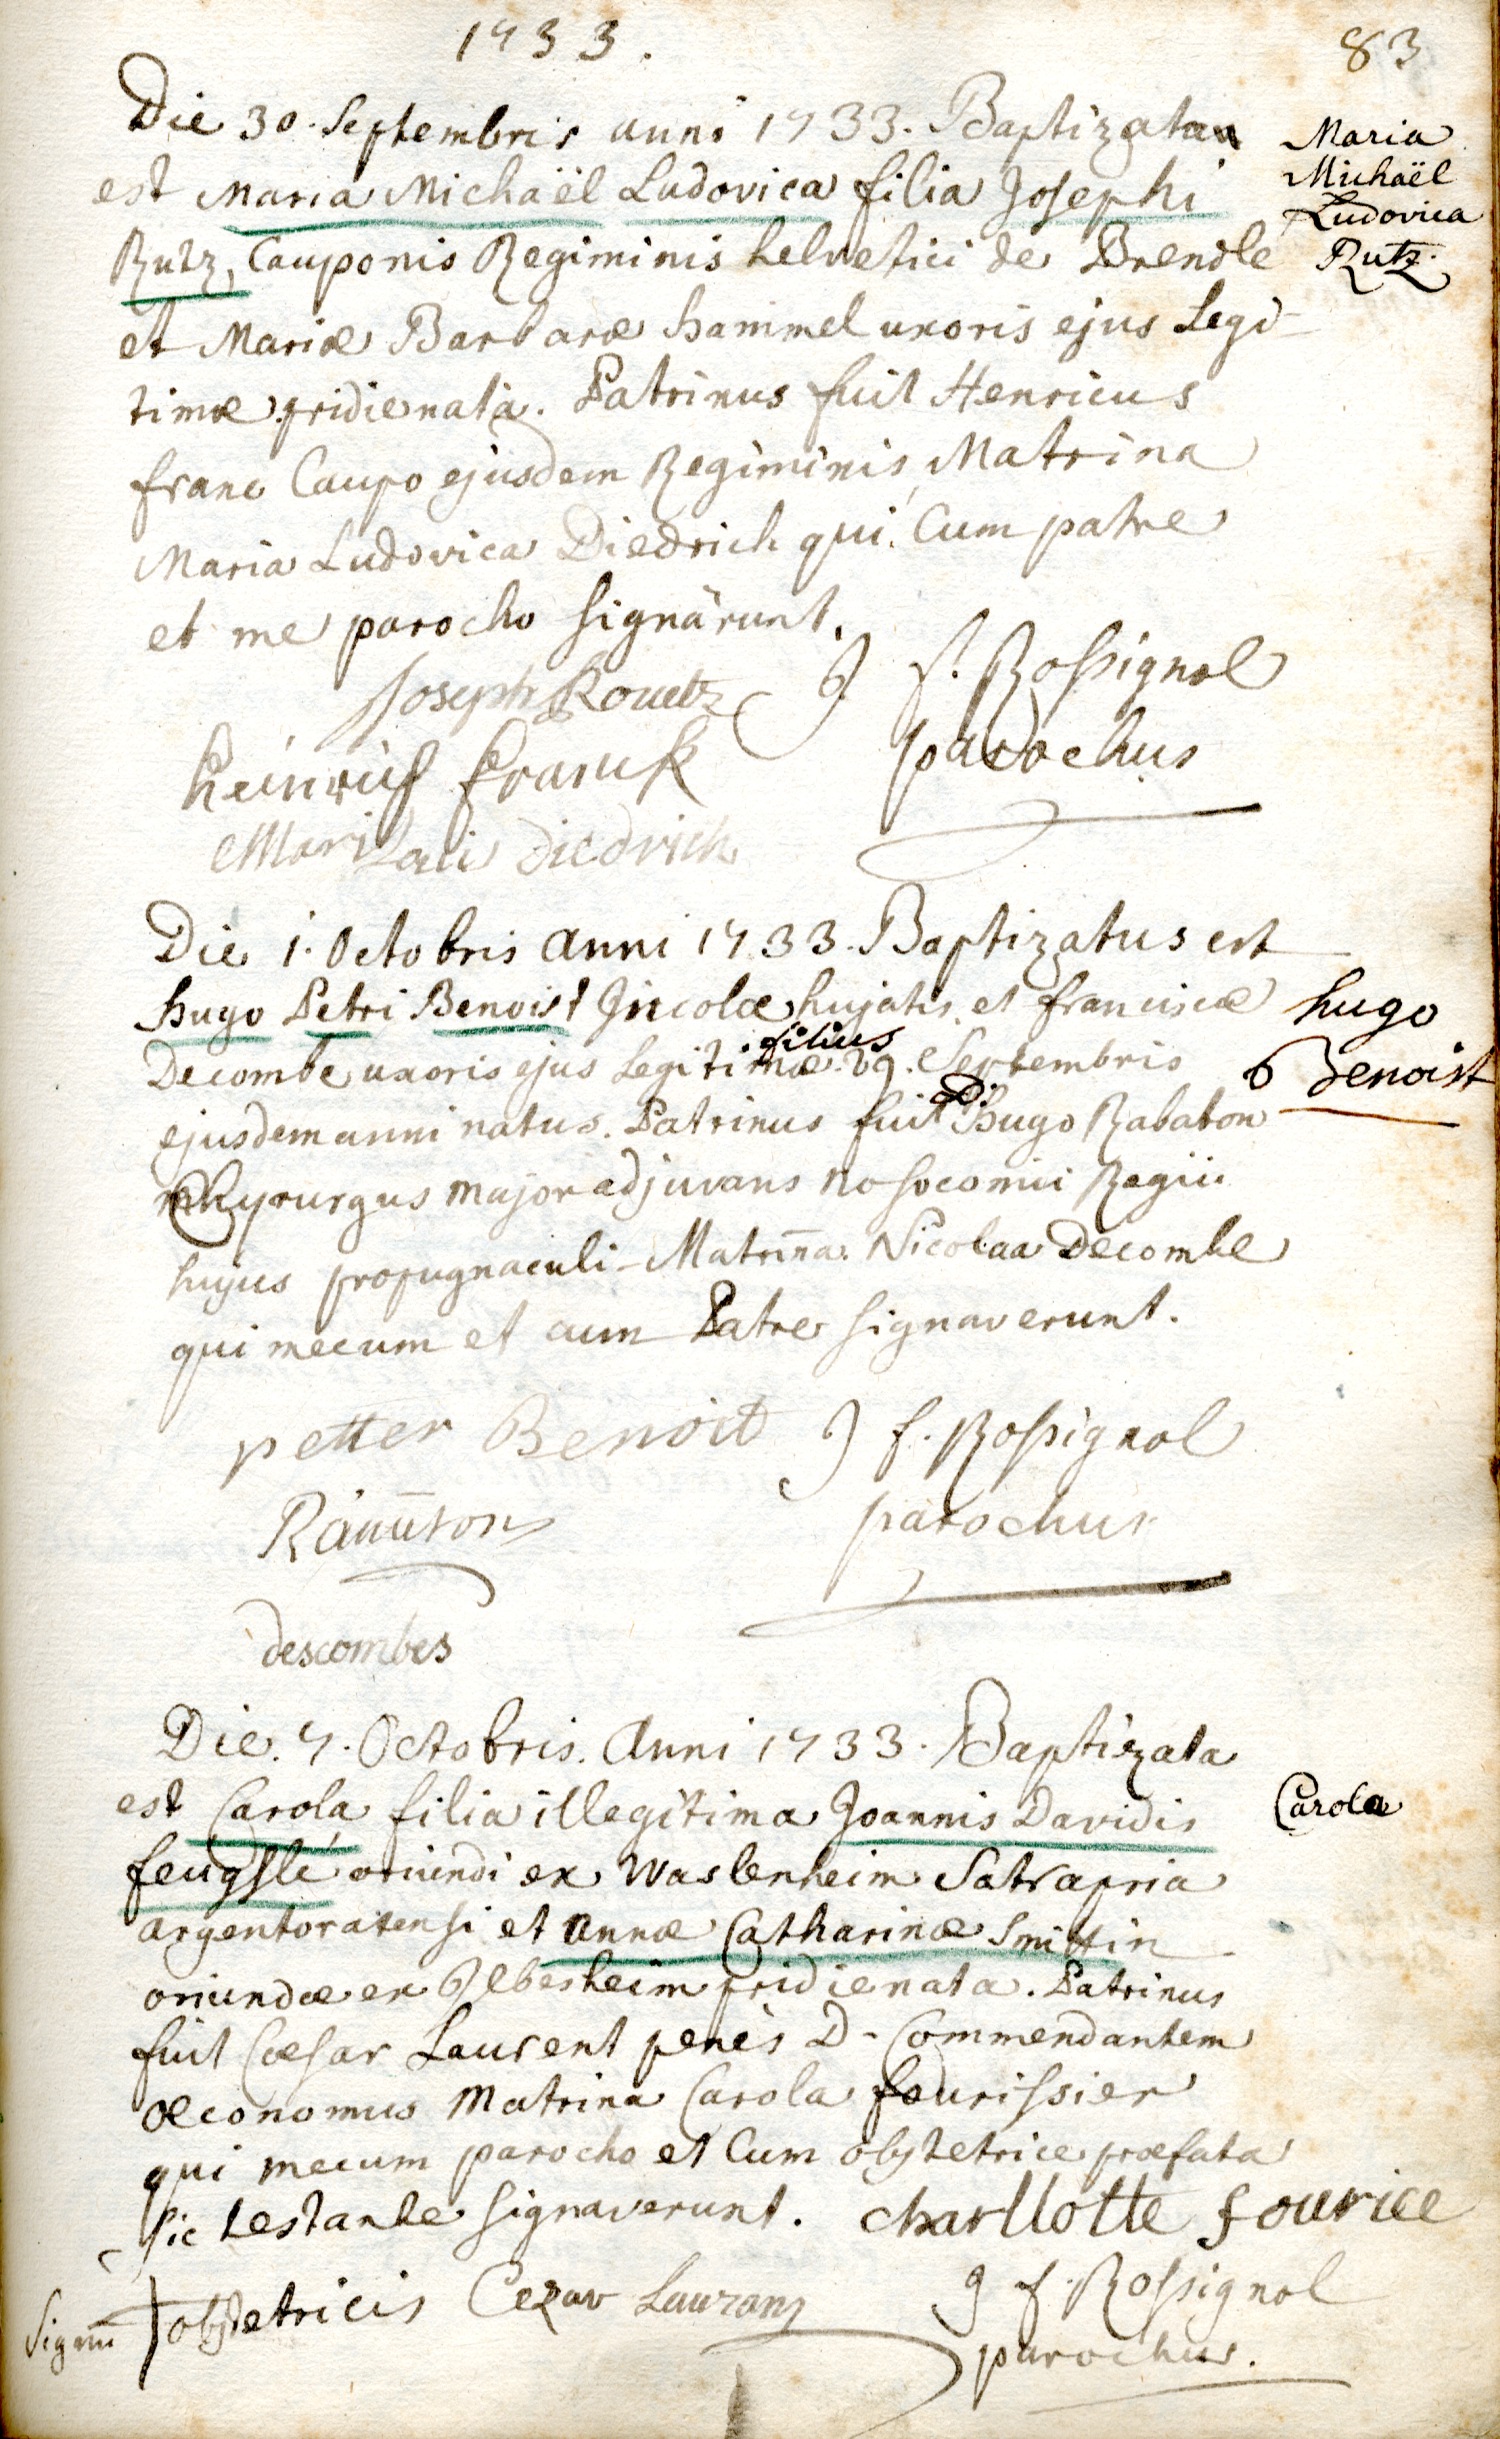 1733.
83
Die 30. Septembris anni 1733. Baptizata
est Maria Michaël Ludovica filia Josephi
Rutz, Cauponis Regiminis helvetici de Brendle
et Mariæ Barbaræ hammel uxoris ejus Legi-
timæ pridie nata. Patrinus fuit Henricus
franc Caupo ejusdem Regiminis, Matrina
Maria Ludovica Diedrich qui Cum patre
et me parocho signârunt.
Maria
Michaël
Ludovica
Rutz.
Joseph Rouetz
J f. Rossignol
parochus
heinrich franck
Mari Loui diedrich
Die 1. Octobris anni 1733. Baptizatus est
hugo Petri Benoist Jncolæ hujatis et franciscæ
Decombe uxoris ejus Legitimæ filius 29. Septembris
ejusdem anni natus. Patrinus fuit D. Hugo Rabaton
Chyrurgus major adjuvans nosocomii Regii
hujus propugnaculi - Matrina Nicolaa Decombe
qui mecum et cum Patre signaverunt.
hugo
Benoist
petter Benoit
J f. Rossignol
parochus
descombes
Die 7. Octobris. Anni 1733. Baptizata
est Carola filia illegitima Joannis Davidis
feugslé oriundi ex Waslenheim Satrapria
argentoratensi et annæ Catharinæ Smittin
oriundæ ex Olbersheim pridie nata. Patrinus
fuit Cæsar Laurent penès D. Commendantem
œconomus Matrina Carola fourissier
qui mecum parocho et Cum obstetrice præfata
sic testante signaverunt. charllotte fourice
Carola
Signũ obstetricis Cezar Lauranz
J f. Rossignol
parochus.